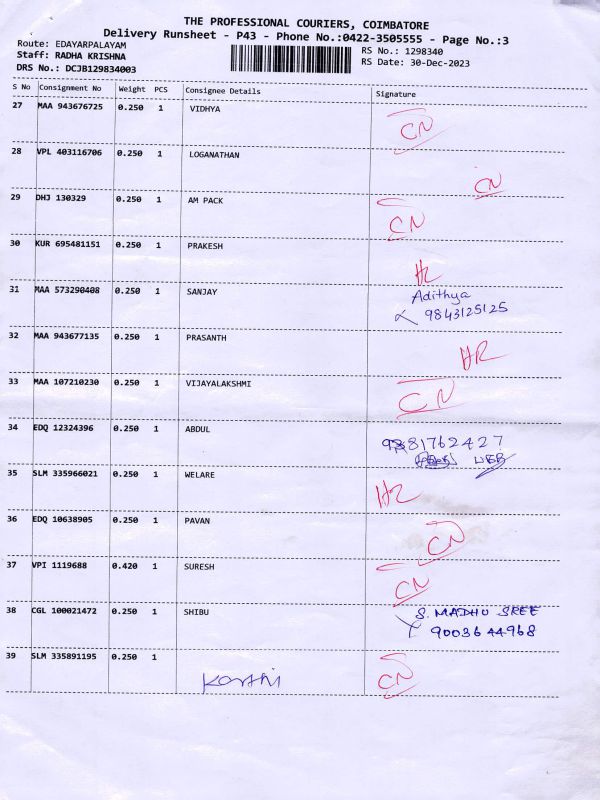 THE PROFESSIONAL COURIERS, COIMBATORE
Delivery Runsheet - P43 - Phone No.:0422-3505555 - Page No.:3
Route: EDAYARPALAYAM
Staff: RADHA KRISHNA
DRS No.: DCJB129834003
RS No.: 1298340
RS Date: 30-Dec-2023
S No Consignment No Weight PCS Consignee Details Signature
27 MAA 943676725 0.250 1 VIDHYA CN
28 VPL 403116706 0.250 1 LOGANATHAN CN
29 DHJ 130329 0.250 1 AM PACK CN
30 KUR 695481151 0.250 1 PRAKESH
31 MAA 573290408 0.250 1 SANJAY Adithya
9843125125
32 MAA 943677135 0.250 1 PRASANTH HR
33 MAA 107210230 0.250 1 VIJAYALAKSHMI CN
34 EDQ 12324396 0.250 1 ABDUL
35 SLM 335966021 0.250 1 WELARE
36 EDQ 10638905 0.250 1 PAVAN CN
37 VPI 1119688 0.420 1 SURESH CN
38 CGL 100021472 0.250 1 SHIBU S. MADHU SREE
9003644968
39 SLM 335891195 0.250 1 CN